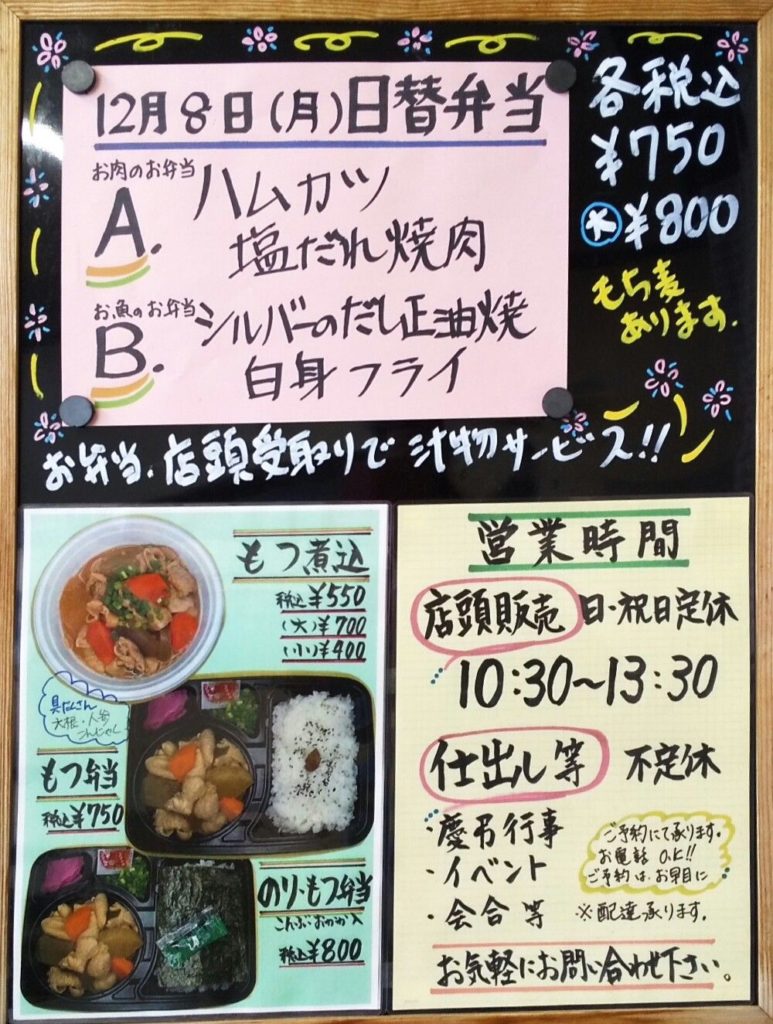 12月8日(月)日替弁当
お肉のお弁当
A.
ハムカツ
塩だれ焼肉
お魚のお弁当
B.
シルバーのだし正油焼
白身フライ
各税込
¥750
大 ¥800
もち麦
あります.
お弁当、店頭受取りで 汁物サービス!!
もつ煮込
税込¥550
(大)¥700
(小)¥400
具だくさん
大根・人参
こんにゃく
もつ弁当
税込¥750
のり・もつ弁当
こんぶおかか入
税込¥800
営業時間
店頭販売 日・祝日定休
10:30~13:30
仕出し等 不定休
・慶弔行事
・イベント
・会合等
ご予約にて承ります.
お電話 O.K!!
ご予約は、お早目に
※配達承ります.
お気軽にお問い合わせ下さい。